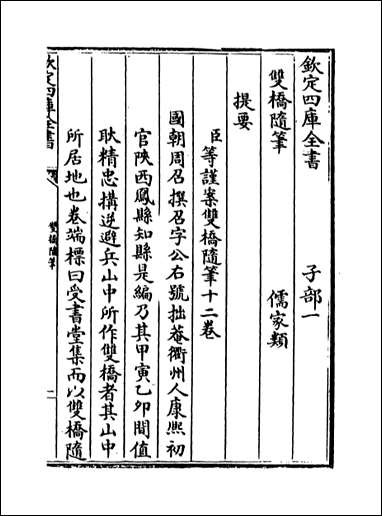 欽定四庫全書　子部一
雙橋隨筆　儒家類
提要
臣等謹案雙橋隨筆十二卷
國朝周召撰召字公右號拙菴衢州人康熙初
官陜西鳳縣知縣是編乃其甲寅乙卯間值
耿精忠搆逆避兵山中所作雙橋者其山中
所居地也卷端標曰受書堂集而以雙橋隨
欽定四庫全書
雙橋隨筆
一